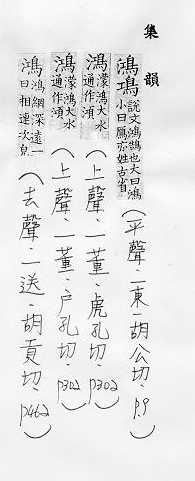 集韻
鴻䲨 說文鴻鵠也大曰鴻
小曰鴈亦姓古省
(平聲.一東.胡公切.P.9)
鴻 濛鴻大水
通作澒
(上聲.一董.虎孔切.P302)
鴻 濛鴻大水
通作澒
(上聲.一董.戶孔切.P302)
鴻 鴻絧深遠一
曰相連次皃
(去聲.一送.胡貢切.P462)